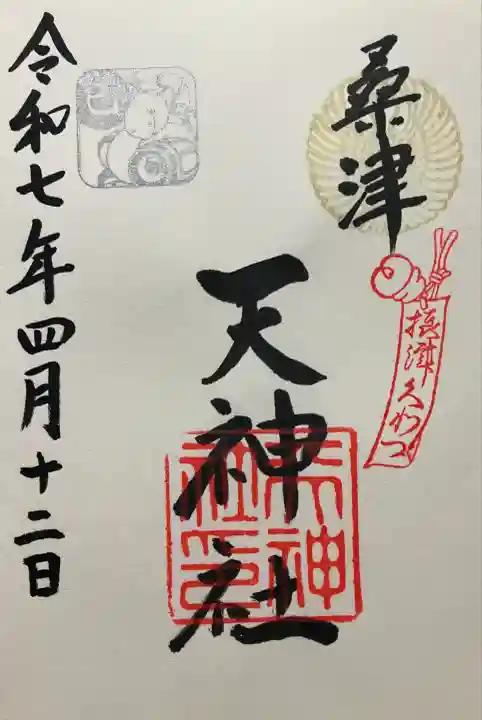 桑津
摂津くわつ
天神社
天神社印
令和七年四月十二日